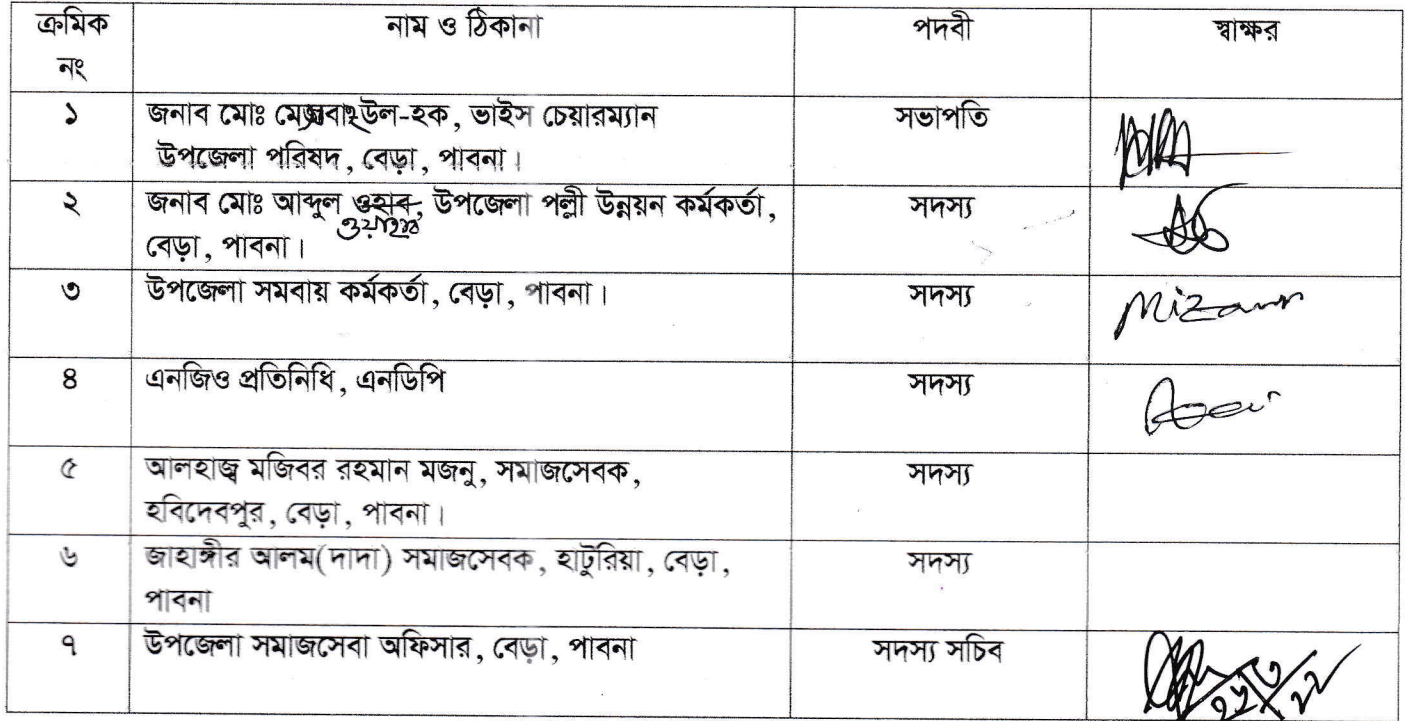 ক্রমিক নাম ও ঠিকানা পদবী স্বাক্ষর
নং
১ জনাব মোঃ মেজবাহউল-হক, ভাইস চেয়ারম্যান সভাপতি
উপজেলা পরিষদ, বেড়া, পাবনা।
২ জনাব মোঃ আব্দুল ওহাব, উপজেলা পল্লী উন্নয়ন কর্মকর্তা, সদস্য
বেড়া, পাবনা।
৩ উপজেলা সমবায় কর্মকর্তা, বেড়া, পাবনা। সদস্য
৪ এনজিও প্রতিনিধি, এনডিপি সদস্য
৫ আলহাজ্ব মজিবর রহমান মজনু, সমাজসেবক, সদস্য
হবিদেবপুর, বেড়া, পাবনা।
৬ জাহাঙ্গীর আলম(দাদা) সমাজসেবক, হাটুরিয়া, বেড়া, সদস্য
পাবনা
৭ উপজেলা সমাজসেবা অফিসার, বেড়া, পাবনা সদস্য সচিব